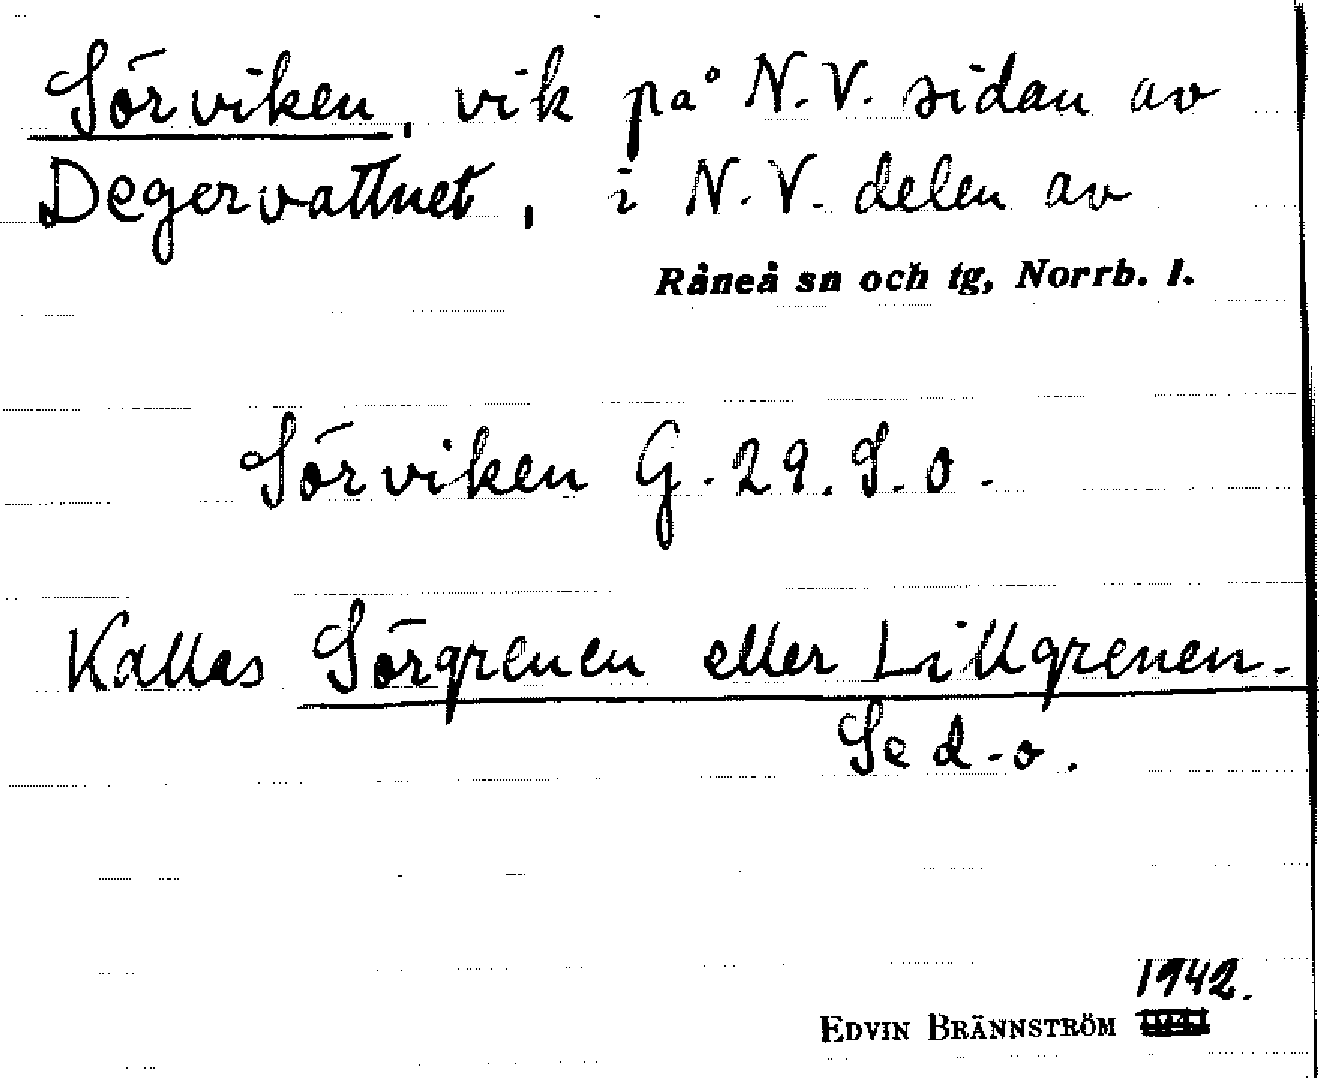 Sörviken, vik på N.V. sidan av
Degervattnet, i N.V. delen av
Råneå sn och tg, Norrb. l.
Sörviken G. 29. S.O.
Kallas Sörgrenen eller Lillgrenen.
Se d-o.
1942.
EDVIN BRÄNNSTRÖM